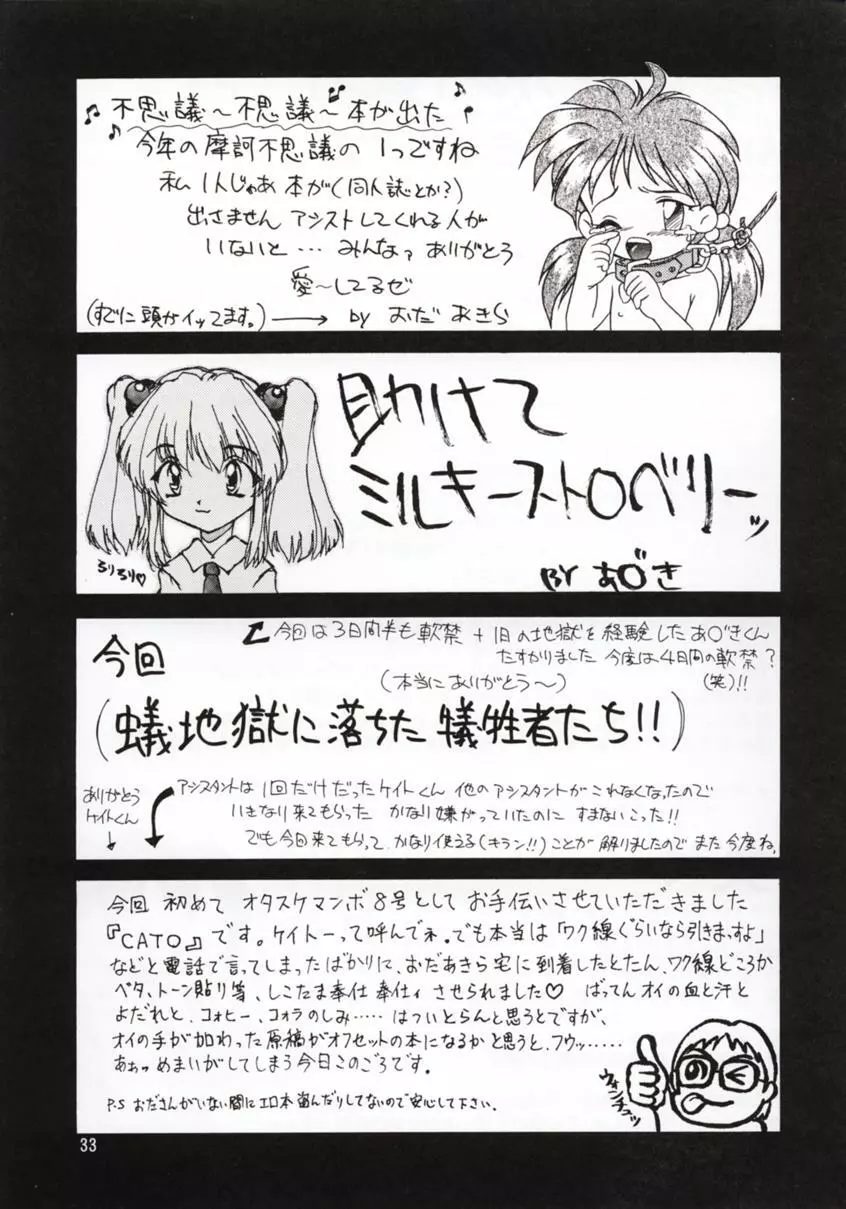 ♪不思議〜不思議〜本が出た♪
今年の摩訶不思議の1つですね
私1人じゃあ本が(同人誌とか?)
出さませんアシストしてくれる人が
いないと…みんなァありがとう
愛〜してるぜ
(すでに頭がイッてます。)→by おだ あきら
助けて
ミルキーストロベリーッ
BY あ○゛き
ろりろり♡
今回は3日間半も軟禁+1日の地獄を経験したあ○゛きくん
たすかりました 今度は4日間の軟禁?
(笑)!!
今回
(本当にありがとう〜)
(蟻地獄に落ちた犠牲者たち!!)
ありがとう
ケイトくん
アシスタントは1回だけだったケイトくん 他のアシスタントがこれなくなったので
いきなり来てもらった かなり嫌がっていたのに すまないこった!!
でも今回来てもらって、かなり使える(キラン!!)ことが解りましたのでまた今度ね。
今回初めてオタスケマンボ8号としてお手伝いさせていただきました
『CATO』です。ケイトーって呼んでネ。でも本当は「ワク線ぐらいなら引きまっすよ」
などと電話で言ってしまったばかりに、おだあきら宅に到着したとたん、ワク線どころか
ベタ、トーン貼り等、しこたま奉仕奉仕ィさせられました♡ ばってんオイの血と汗と
よだれと、コォヒー、コォラのしみ……はついとらんと思うとですが、
オイの手が加わった原稿がオフセットの本になるかと思うと、フウッ……
あぁっめまいがしてしまう今日このごろです。
P.S おださんがいない間にエロ本盗んだりしてないので安心して下さい。
ウォンチュッ
33